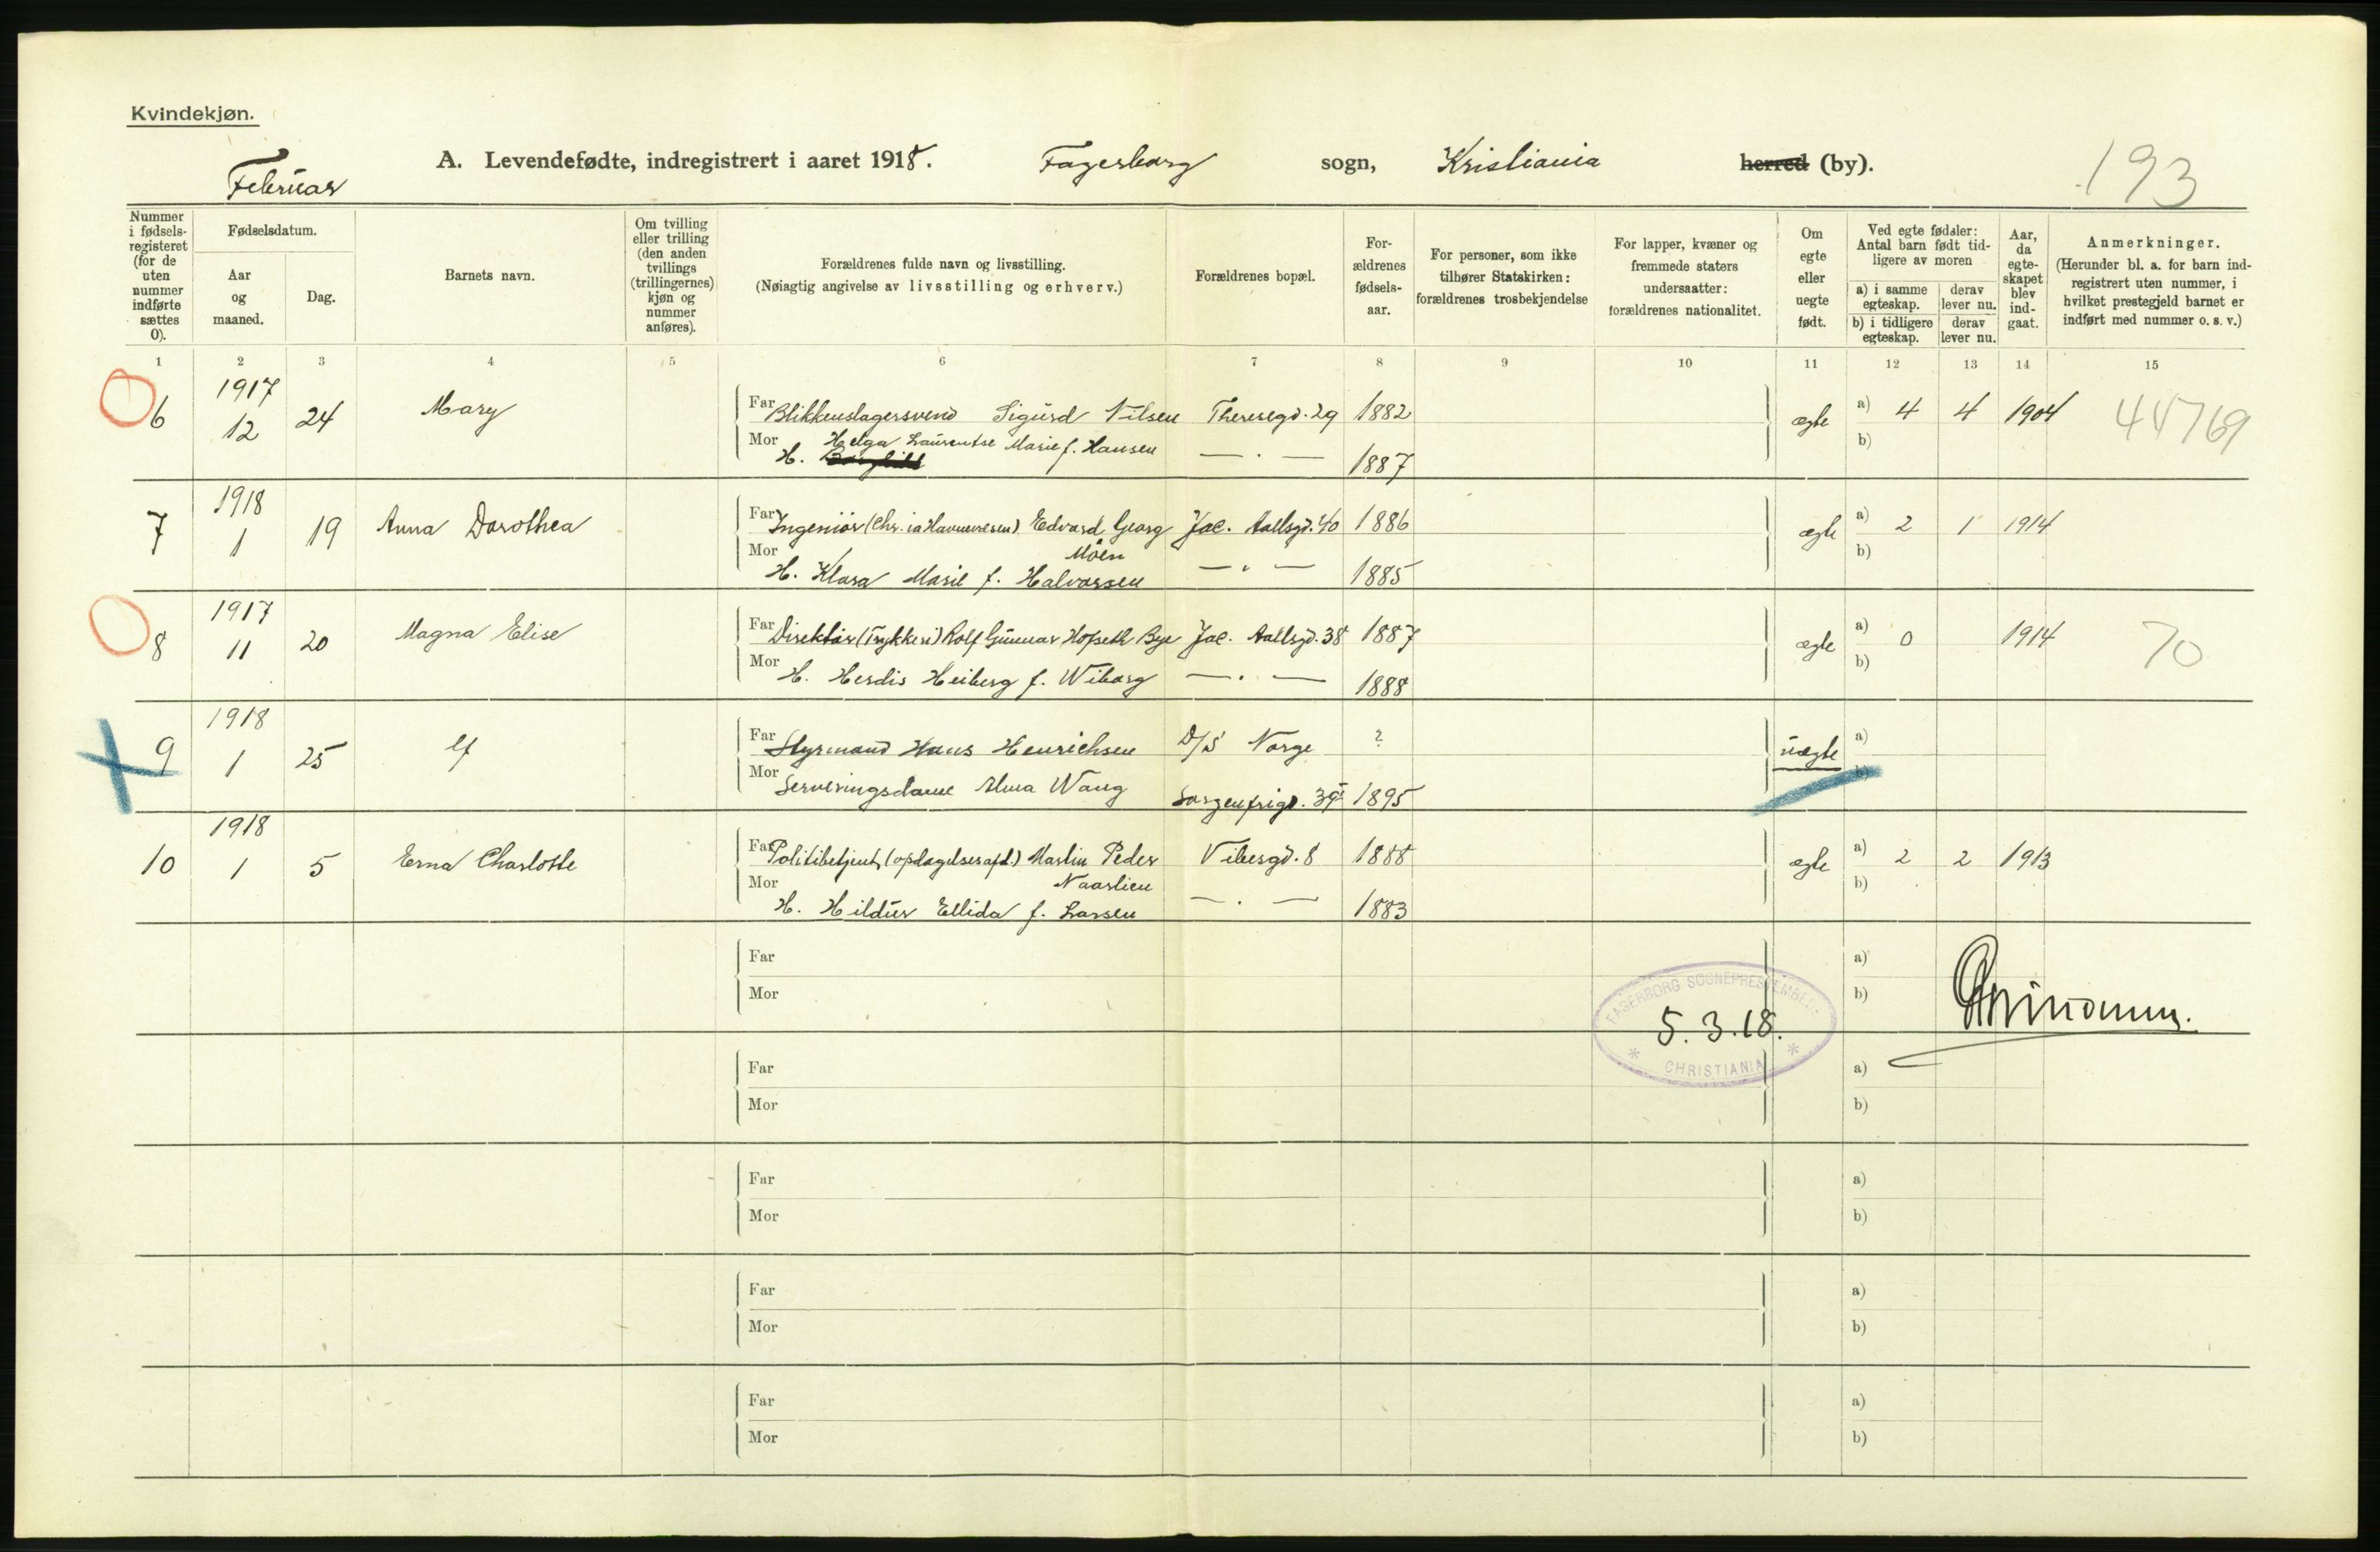 Kvindekjøn.
A. Levendefødte, indregistrert i aaret 1918. Fagerborg sogn, Kristiania herred (by).
Februar
193
Nummer i fødsels-registeret (for de uten nummer indførte sættes 0).
Fødselsdatum.
Aar og maaned.
Dag.
Barnets navn.
Om tvilling eller trilling (den anden tvillings (trillingernes) kjøn og nummer anføres).
Forældrenes fulde navn og livsstilling.
(Nøiagtig angivelse av livsstilling og erhverv.)
Forældrenes bopæl.
For-ældrenes fødsels-aar.
For personer, som ikke tilhører Statskirken: forældrenes trosbekjendelse
For lapper, kvæner og fremmede staters undersaatter: forældrenes nationalitet.
Om egte eller uegte født.
Ved egte fødsler: Antal barn født tid-ligere av moren
a) i samme egteskap.
derav lever nu.
b) i tidligere egteskap.
derav lever nu.
Aar, da egte-skapet blev ind-gaat.
Anmerkninger.
(Herunder bl. a. for barn ind-registrert uten nummer, i hvilket prestegjeld barnet er indført med nummer o. s. v.)
1 2 3 4 5 6 7 8 9 10 11 12 13 14 15
6 1917 12 24 Mary
Far Blikkenslagersvend Sigurd Nilsen Theresegd. 29 1882
Mor H. Helga Laurentse Marie f. Hansen — . — 1887
ægte a) 4 4 1904 44769
b)
7 1918 1 19 Anna Dorothea
Far Ingeniør (Chr.ia Havnevesen) Edvard Georg Moen Jac. Aallsgd. 40 1886
Mor H. Klara Marie f. Halvorsen — " — 1885
ægte a) 2 1 1914
b)
8 1917 11 20 Magna Elise
Far Direktør (Trykkeri) Rolf Gunnar Hofseth Bye Jac. Aallsgd. 38 1887
Mor H. Herdis Heiberg f. Wiborg — . — 1888
ægte a) 0 1914 70
b)
9 1918 1 25
Far Styrmand Hans Henrichsen D/S Norge ?
Mor Serveringsdame Alma Wang Sorgenfrigd. 39 1895
uægte a)
b)
10 1918 1 5 Erna Charlotte
Far Politibetjent (opdagelsesafd.) Martin Peder Naastlien Vibesgd. 8 1888
Mor H. Hildur Ellida f. Larsen — . — 1883
ægte a) 2 2 1913
b)
Far a)
Mor b)
FAGERBORG SOGNEPRESTEMBEDE
5.3.18.
CHRISTIANIA
Far a)
Mor b)
Far a)
Mor b)
Far a)
Mor b)
Far a)
Mor b)